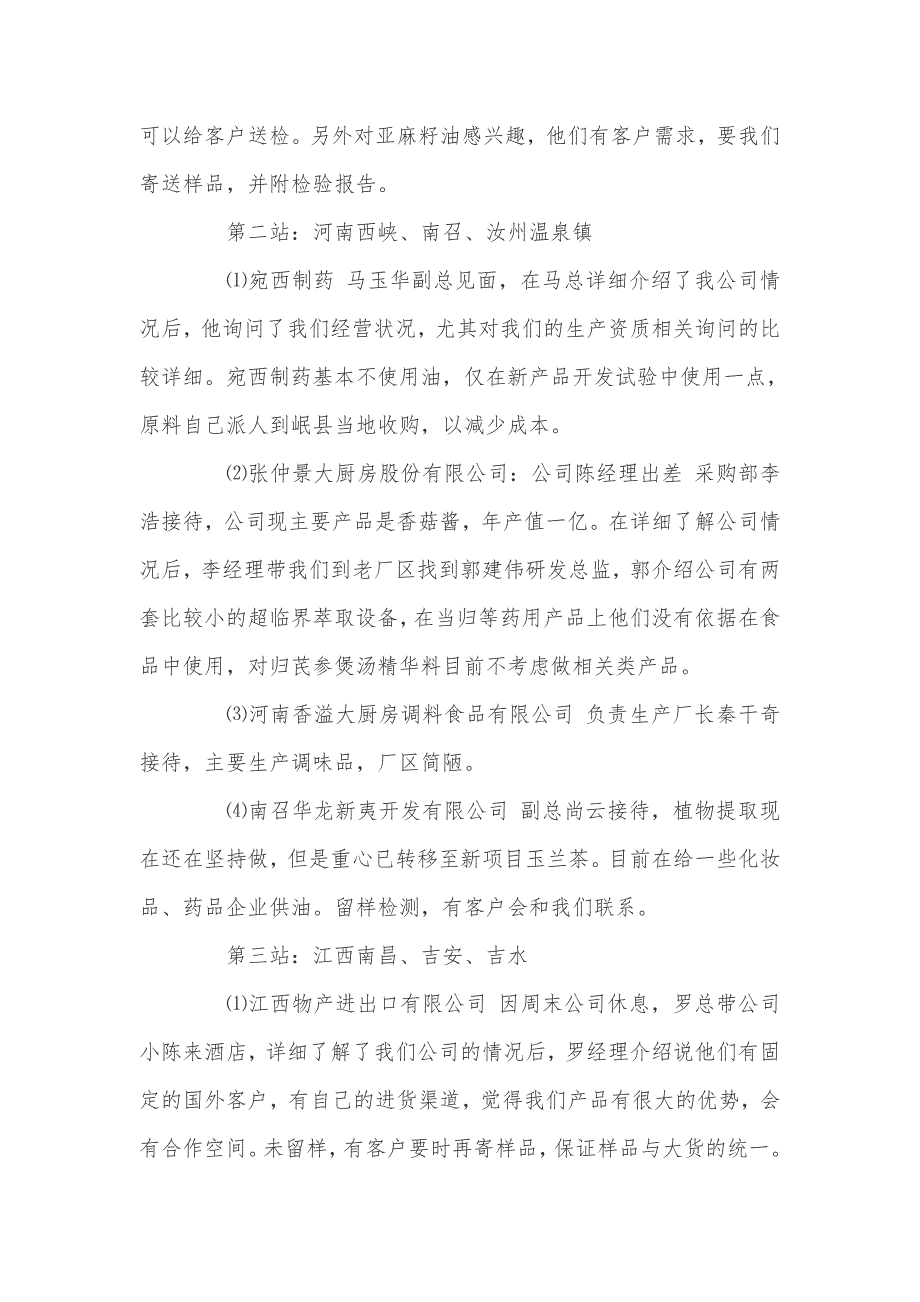 可以给客户送检。另外对亚麻籽油感兴趣，他们有客户需求，要我们
寄送样品，并附检验报告。
第二站：河南西峡、南召、汝州温泉镇
⑴宛西制药 马玉华副总见面，在马总详细介绍了我公司情
况后，他询问了我们经营状况，尤其对我们的生产资质相关询问的比
较详细。宛西制药基本不使用油，仅在新产品开发试验中使用一点，
原料自己派人到岷县当地收购，以减少成本。
⑵张仲景大厨房股份有限公司：公司陈经理出差 采购部李
浩接待，公司现主要产品是香菇酱，年产值一亿。在详细了解公司情
况后，李经理带我们到老厂区找到郭建伟研发总监，郭介绍公司有两
套比较小的超临界萃取设备，在当归等药用产品上他们没有依据在食
品中使用，对归芪参煲汤精华料目前不考虑做相关类产品。
⑶河南香溢大厨房调料食品有限公司 负责生产厂长秦干奇
接待，主要生产调味品，厂区简陋。
⑷南召华龙新夷开发有限公司 副总尚云接待，植物提取现
在还在坚持做，但是重心已转移至新项目玉兰茶。目前在给一些化妆
品、药品企业供油。留样检测，有客户会和我们联系。
第三站：江西南昌、吉安、吉水
⑴江西物产进出口有限公司 因周末公司休息，罗总带公司
小陈来酒店，详细了解了我们公司的情况后，罗经理介绍说他们有固
定的国外客户，有自己的进货渠道，觉得我们产品有很大的优势，会
有合作空间。未留样，有客户要时再寄样品，保证样品与大货的统一。